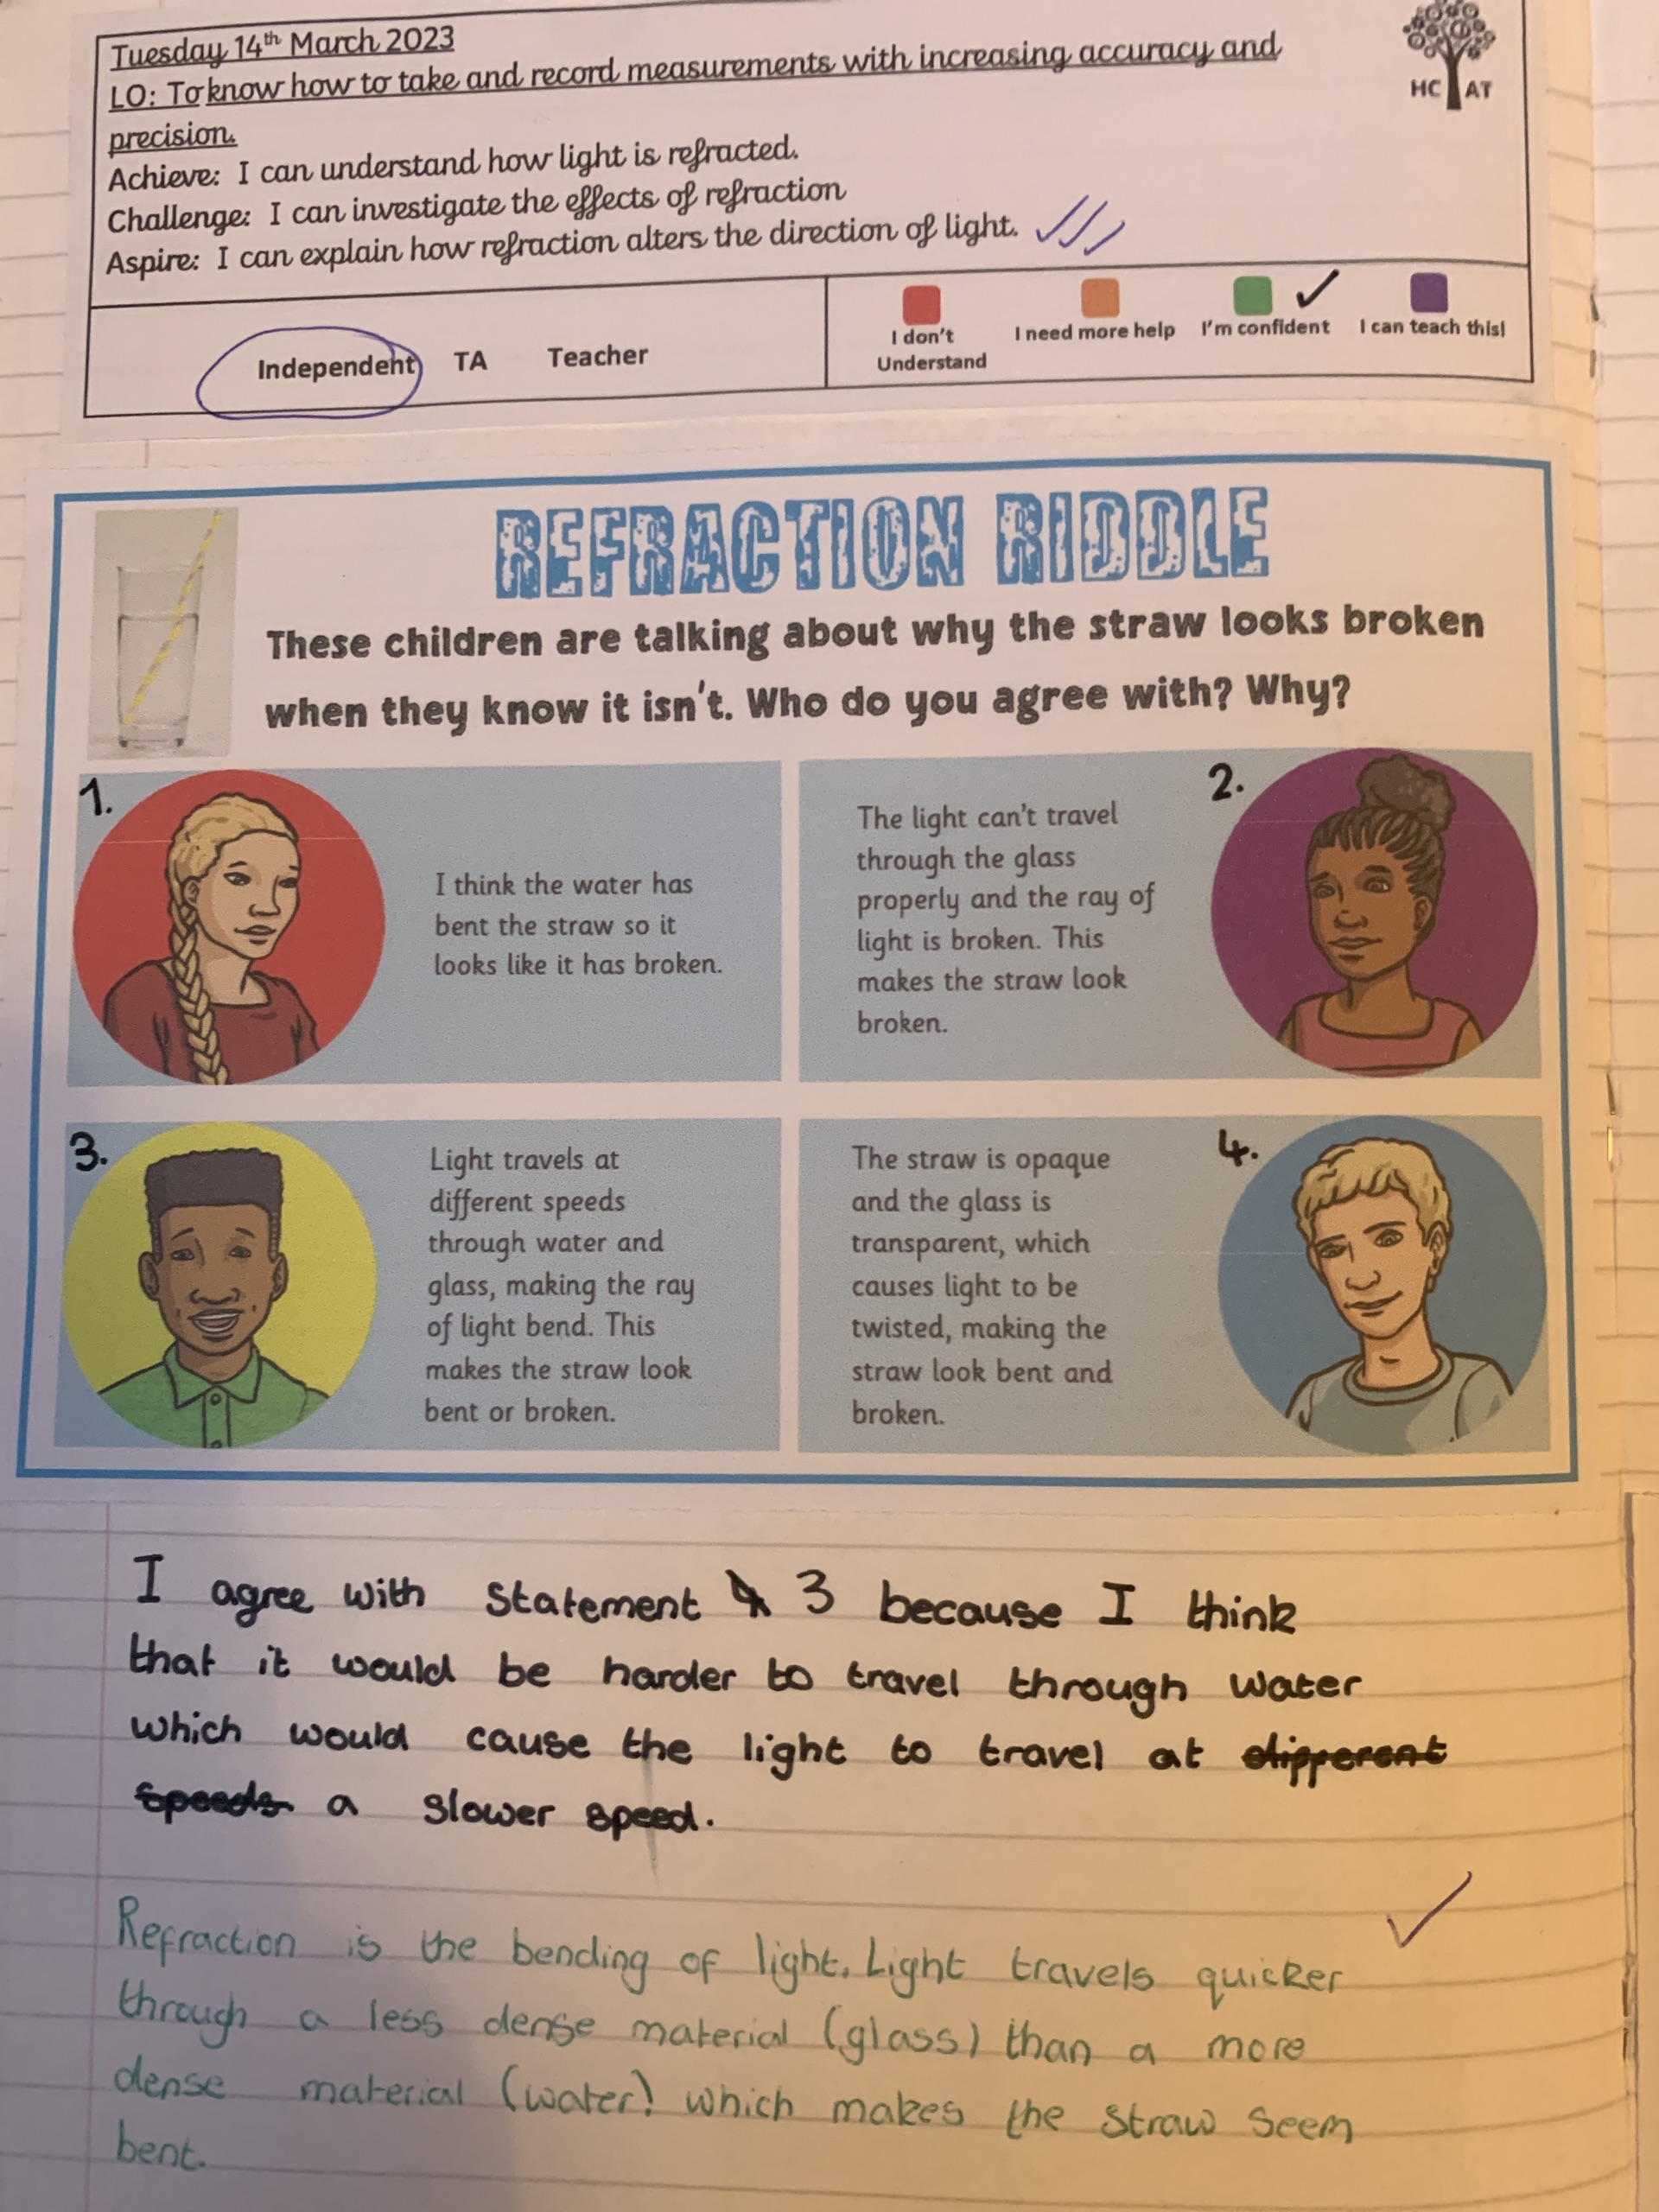 Tuesday 14th March 2023
LO: To know how to take and record measurements with increasing accuracy and
precision.
Achieve: I can understand how light is refracted.
Challenge: I can investigate the effects of refraction
Aspire: I can explain how refraction alters the direction of light.
HC AT
Independent TA Teacher
I don't
Understand
I need more help
I'm confident
I can teach this!
REFRACTION RIDDLE
These children are talking about why the straw looks broken
when they know it isn't. Who do you agree with? Why?
1.
I think the water has
bent the straw so it
looks like it has broken.
2.
The light can't travel
through the glass
properly and the ray of
light is broken. This
makes the straw look
broken.
3.
Light travels at
different speeds
through water and
glass, making the ray
of light bend. This
makes the straw look
bent or broken.
4.
The straw is opaque
and the glass is
transparent, which
causes light to be
twisted, making the
straw look bent and
broken.
I agree with Statement 4 3 because I think
that it would be harder to travel through water
which would cause the light to travel at different
speeds a slower speed.
Refraction is the bending of light. Light travels quicker
through a less dense material (glass) than a more
dense material (water) which makes the straw seem
bent.